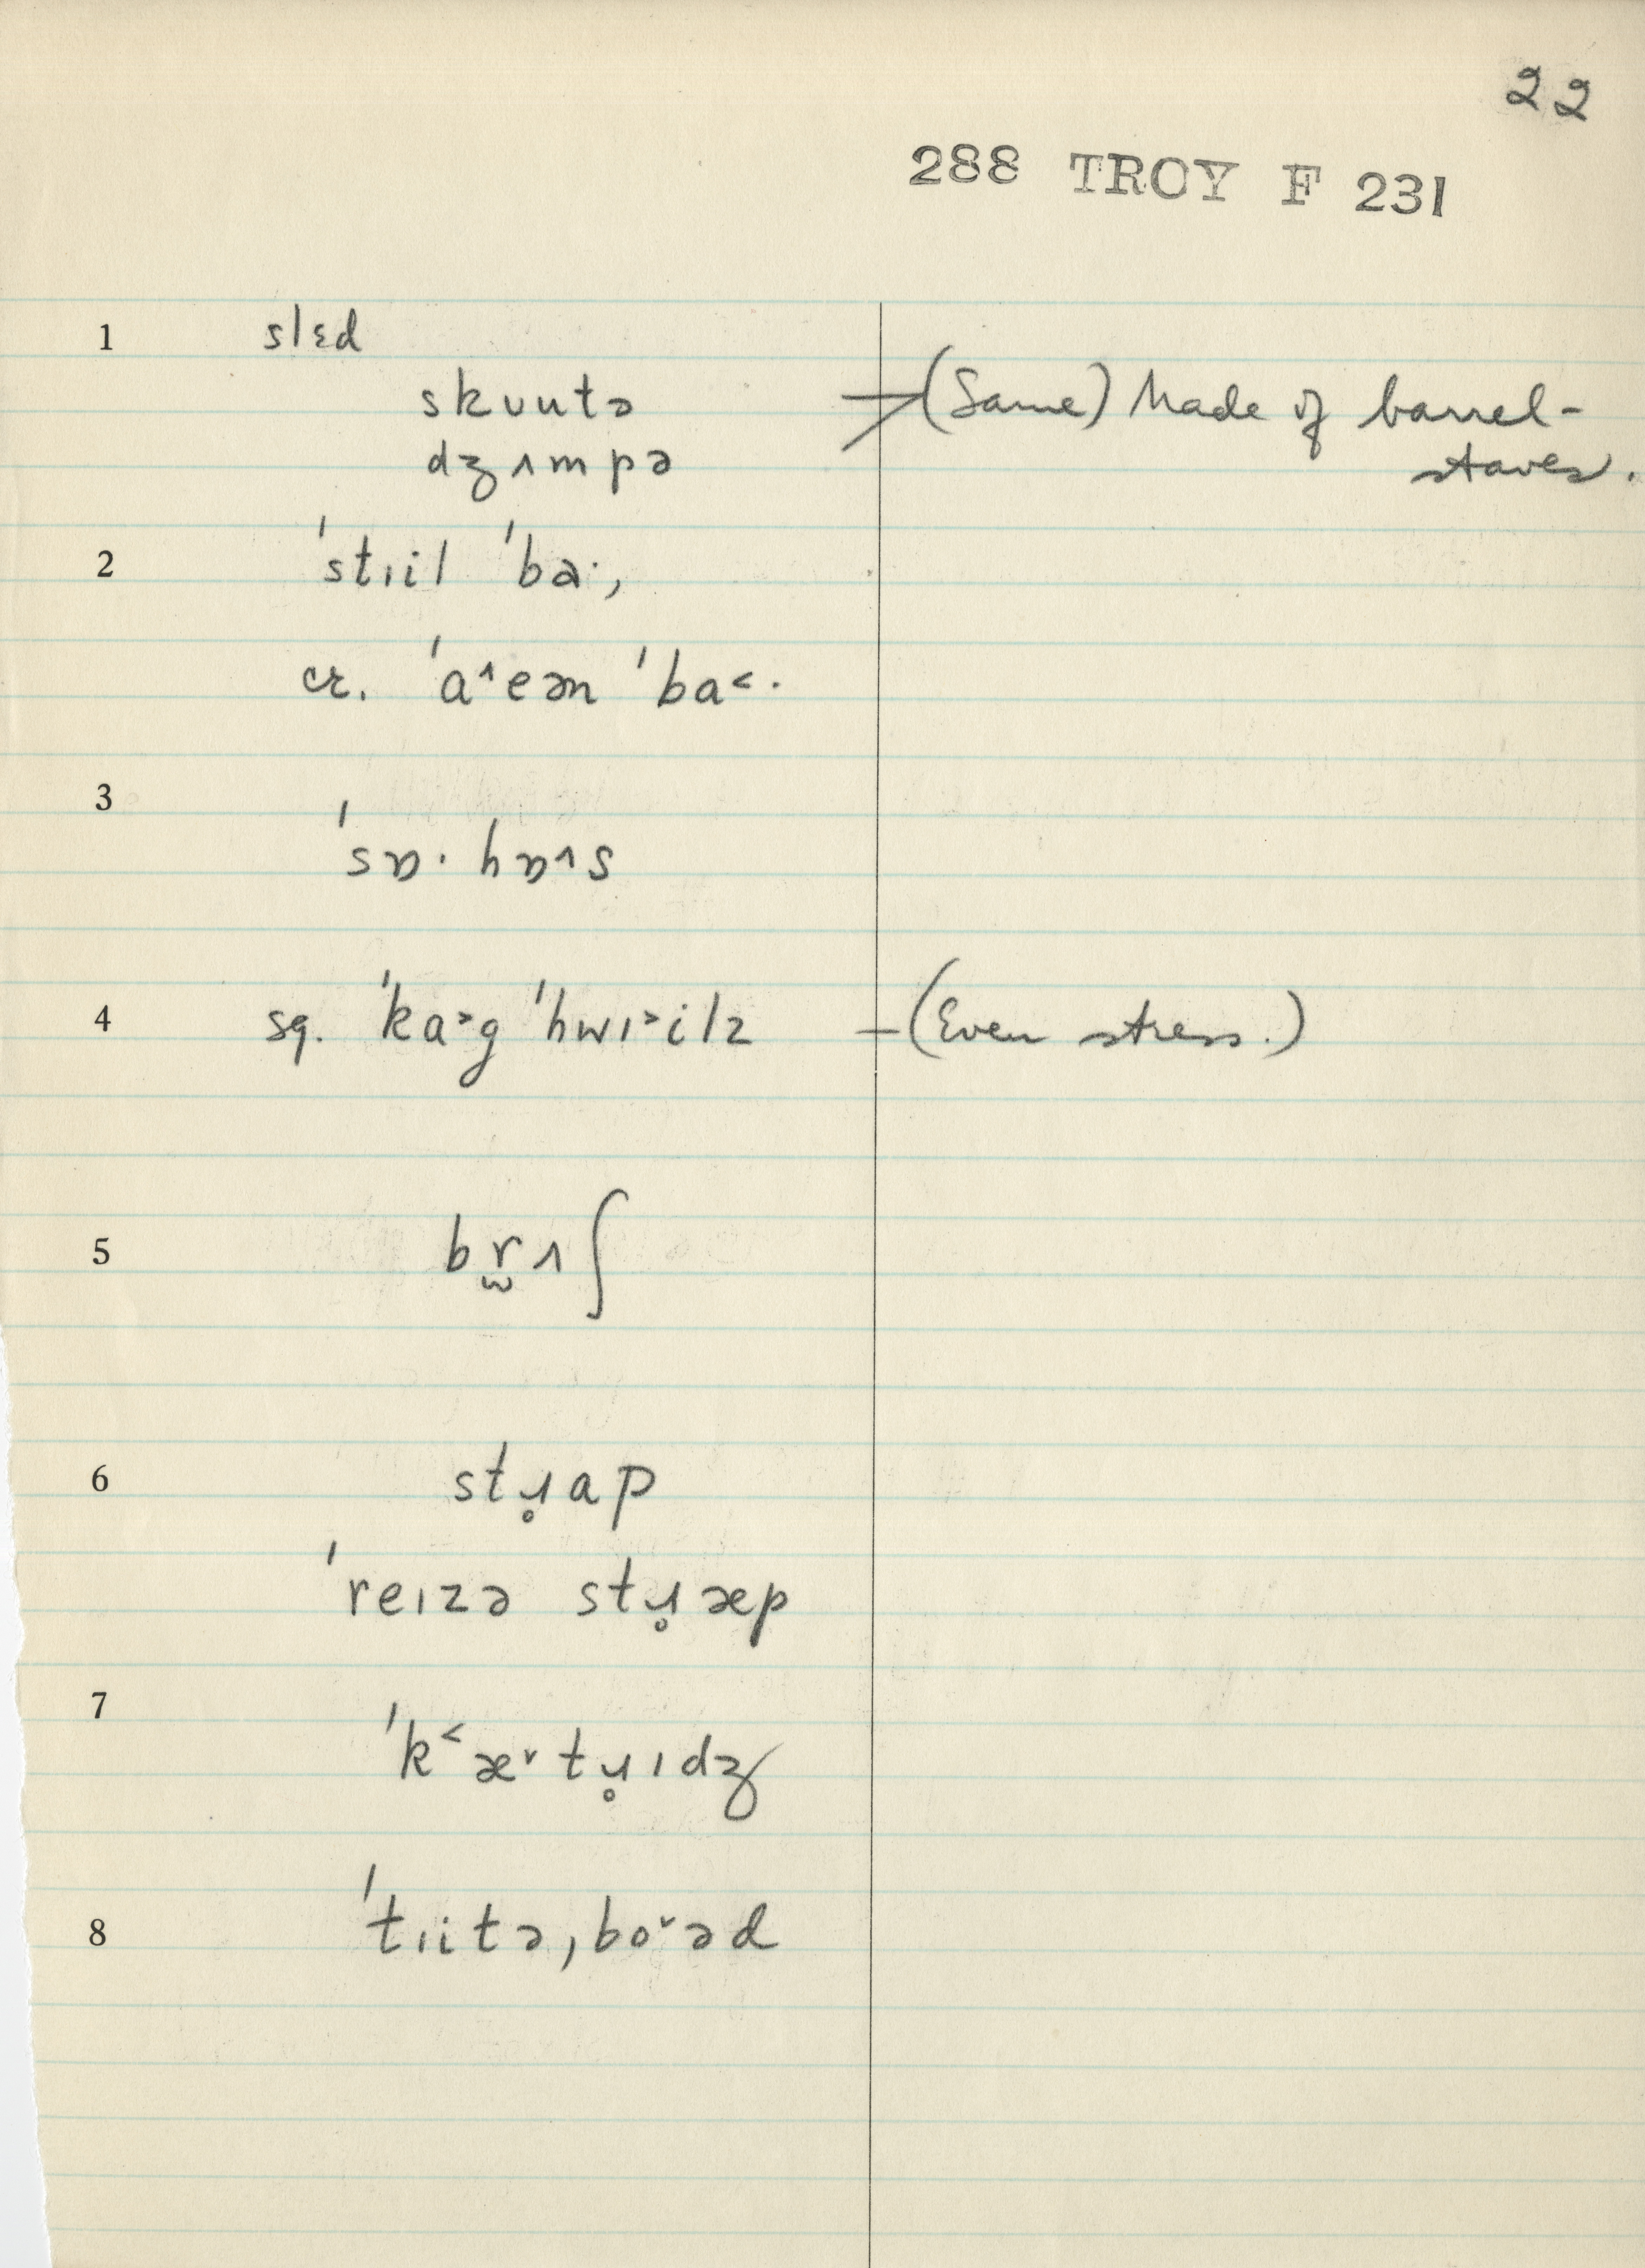 22
288 TROY F 231
1 slɛd
skʊutə (Same) Made of barrel-
dʒʌmpə staves.
2 ˈstɪil ˈba·,
cr. ˈa˄eən ˈba˂.
3 ˈsɒ· hɒ˄s
4 sq. ˈka˃g ˈhwɪ˃ilz – (Even stress.)
5 br̫ʌʃ
6 stɹ̥ap
ˈreɪzə stɹ̥æp
7 ˈk˂æ˅tɹ̥ɪdʒ
8 ˈtɪitə,bo˅əd